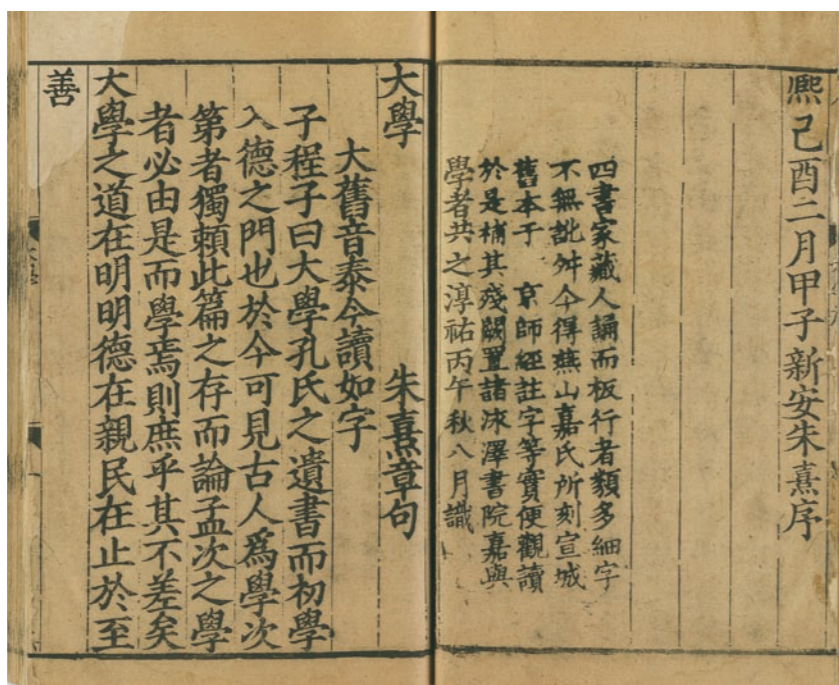 熈己酉二月甲子新安朱熹序
四書家藏人誦而板行者類多細字
不無訛舛今得燕山嘉氏所刻宣城
舊本于 京師經註字等實便觀讀
於是補其殘闕置諸泳澤書院嘉與
學者共之淳祐丙午秋八月識
大學 朱熹章句
大舊音泰今讀如字
子程子曰大學孔氏之遺書而初學
入德之門也於今可見古人爲學次
第者獨頼此篇之存而論孟次之學
者必由是而學焉則庶乎其不差矣
大學之道在明明德在親民在止於至
善